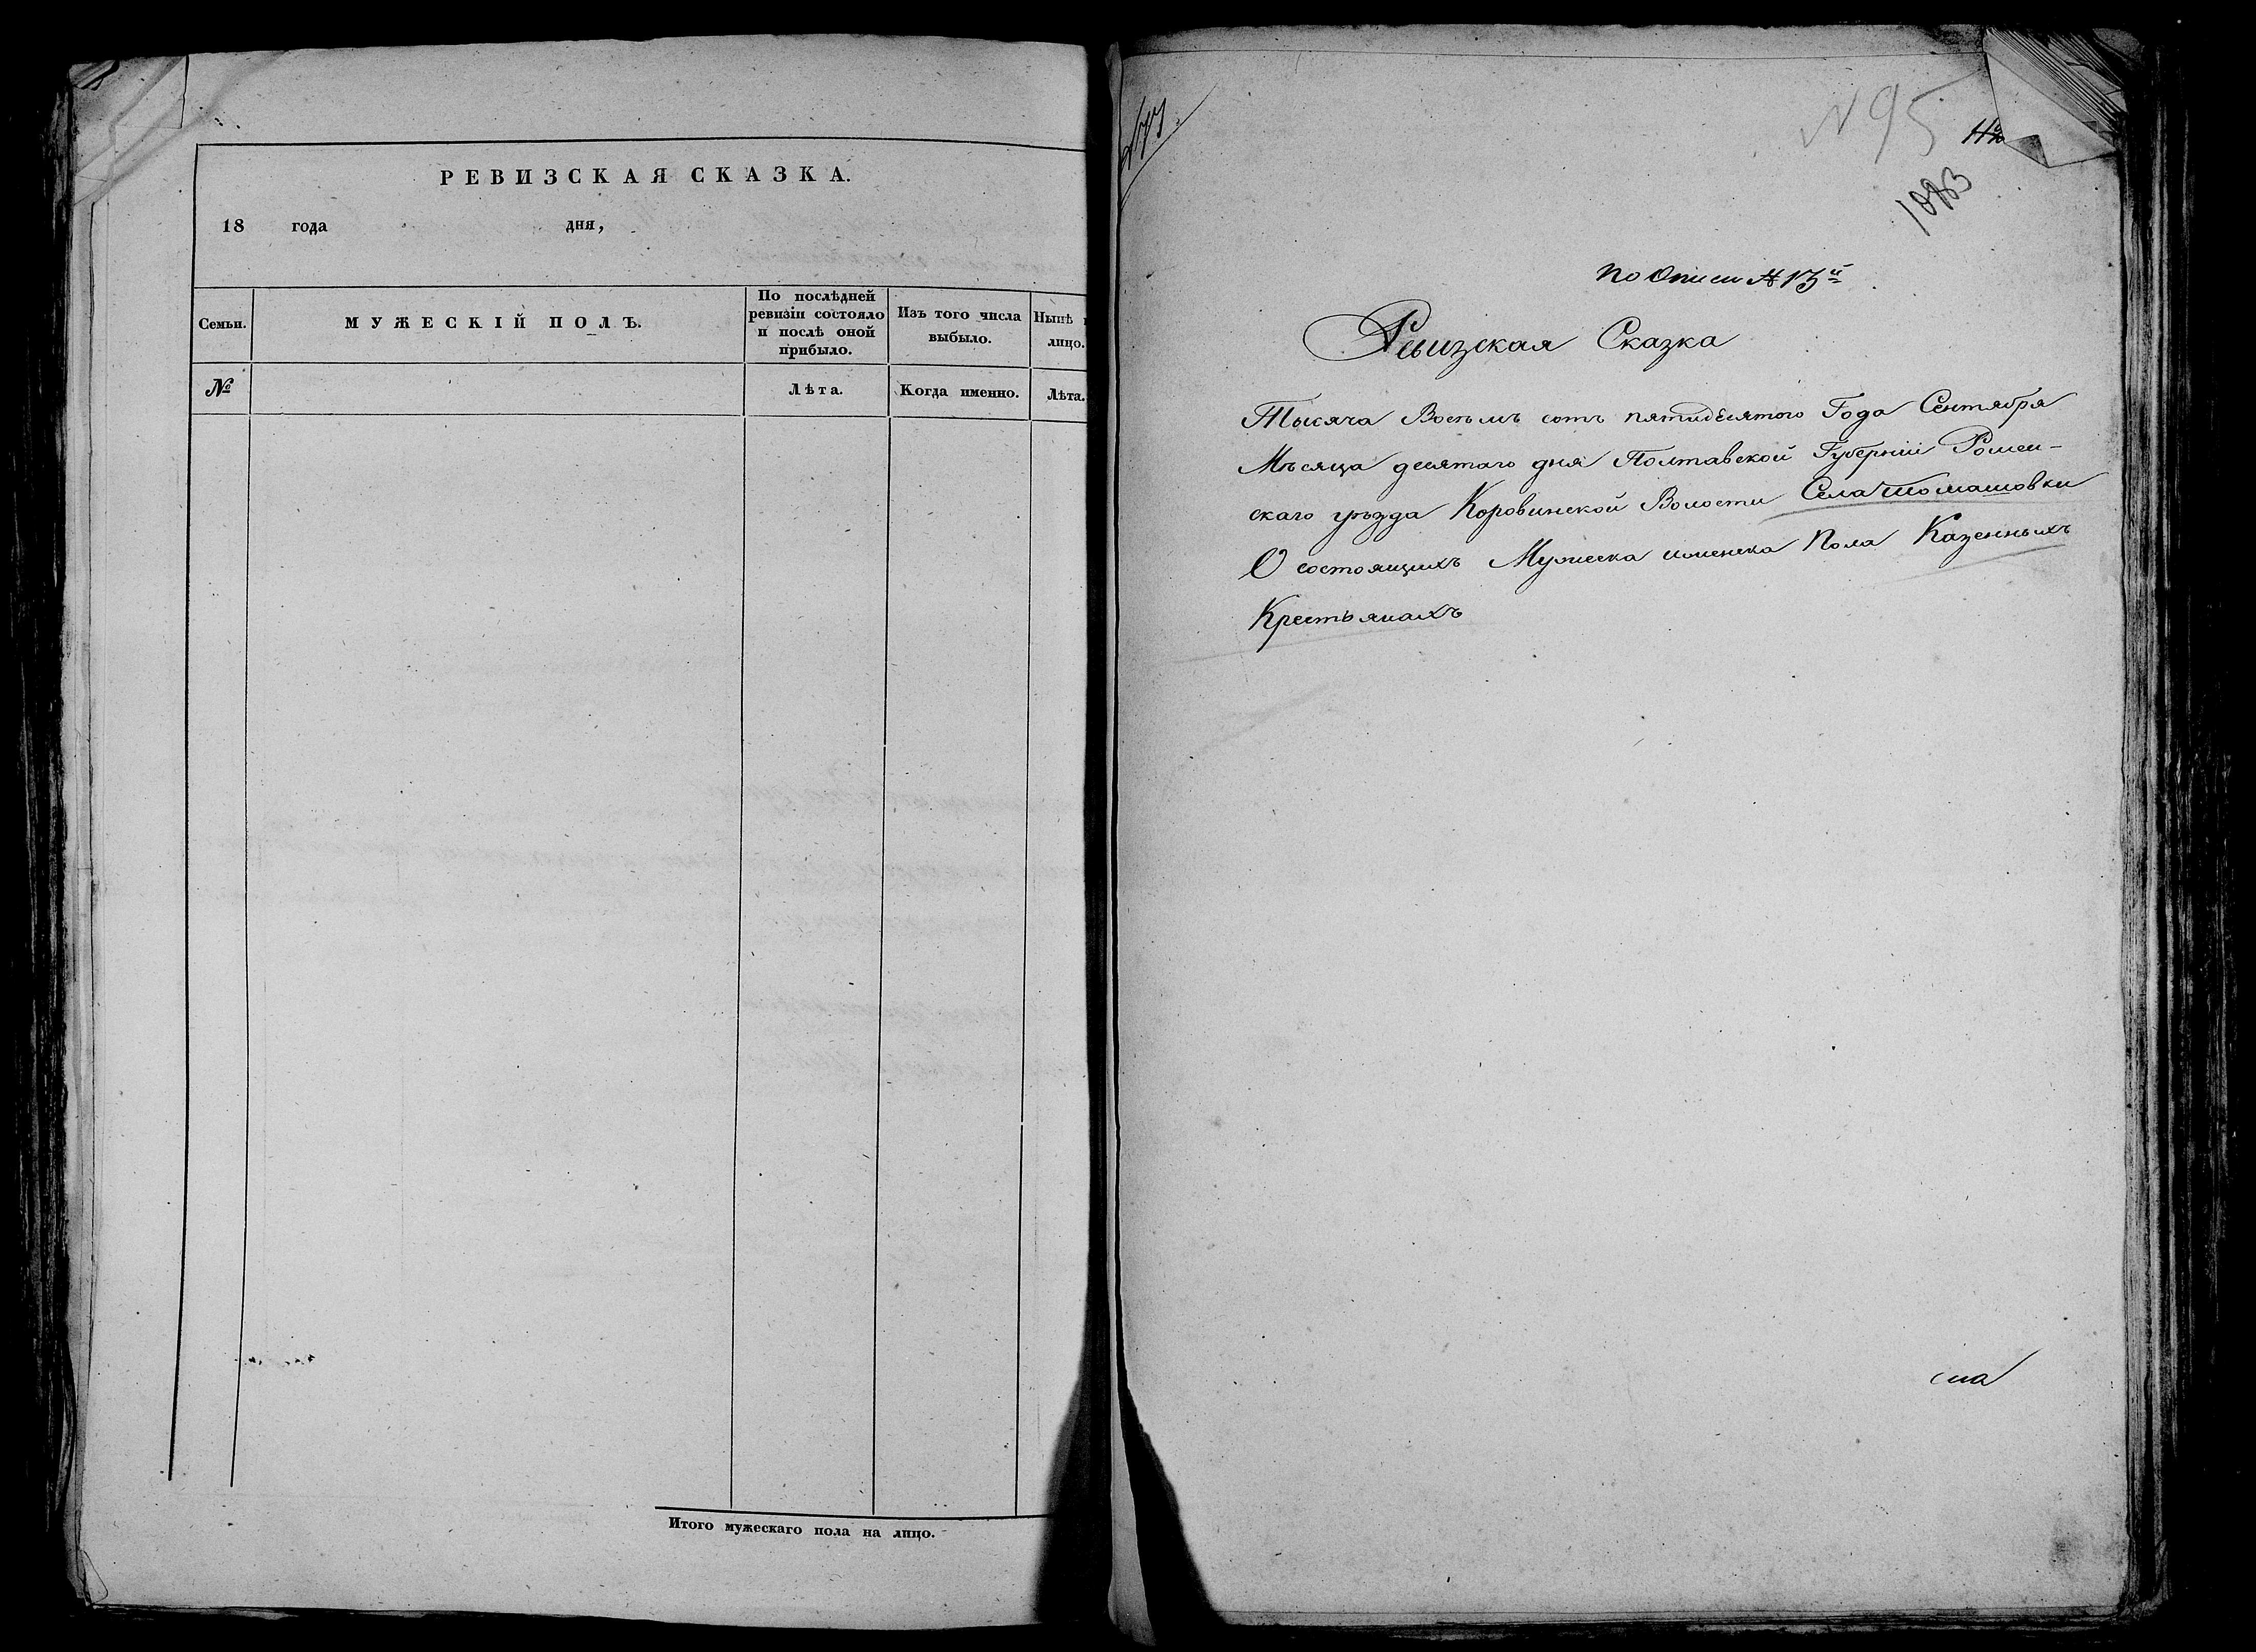 РЕВИЗСКАЯ СКАЗКА.
18 года дня,
Семьи.
МУЖЕСКІЙ ПОЛЪ.
По послѣдней
ревизіи состояло
и послѣ оной
прибыло.
Изъ того числа
выбыло.
Нынѣ
лицо.
№
Лѣта.
Когда именно.
Лѣта.
Итого мужескаго пола на лицо.
N 95
По Описи № 13й
Ревизская Сказка
Тысяча Восемь сотъ пятидесятого Года Сентября
Мѣсяца десятаго дня Полтавской Губерніи Ромен-
скаго уѣзда Коровинской Волости Села Томашовки
О состоящихъ Мужеска и женска Пола Казенныхъ
Крестьянахъ